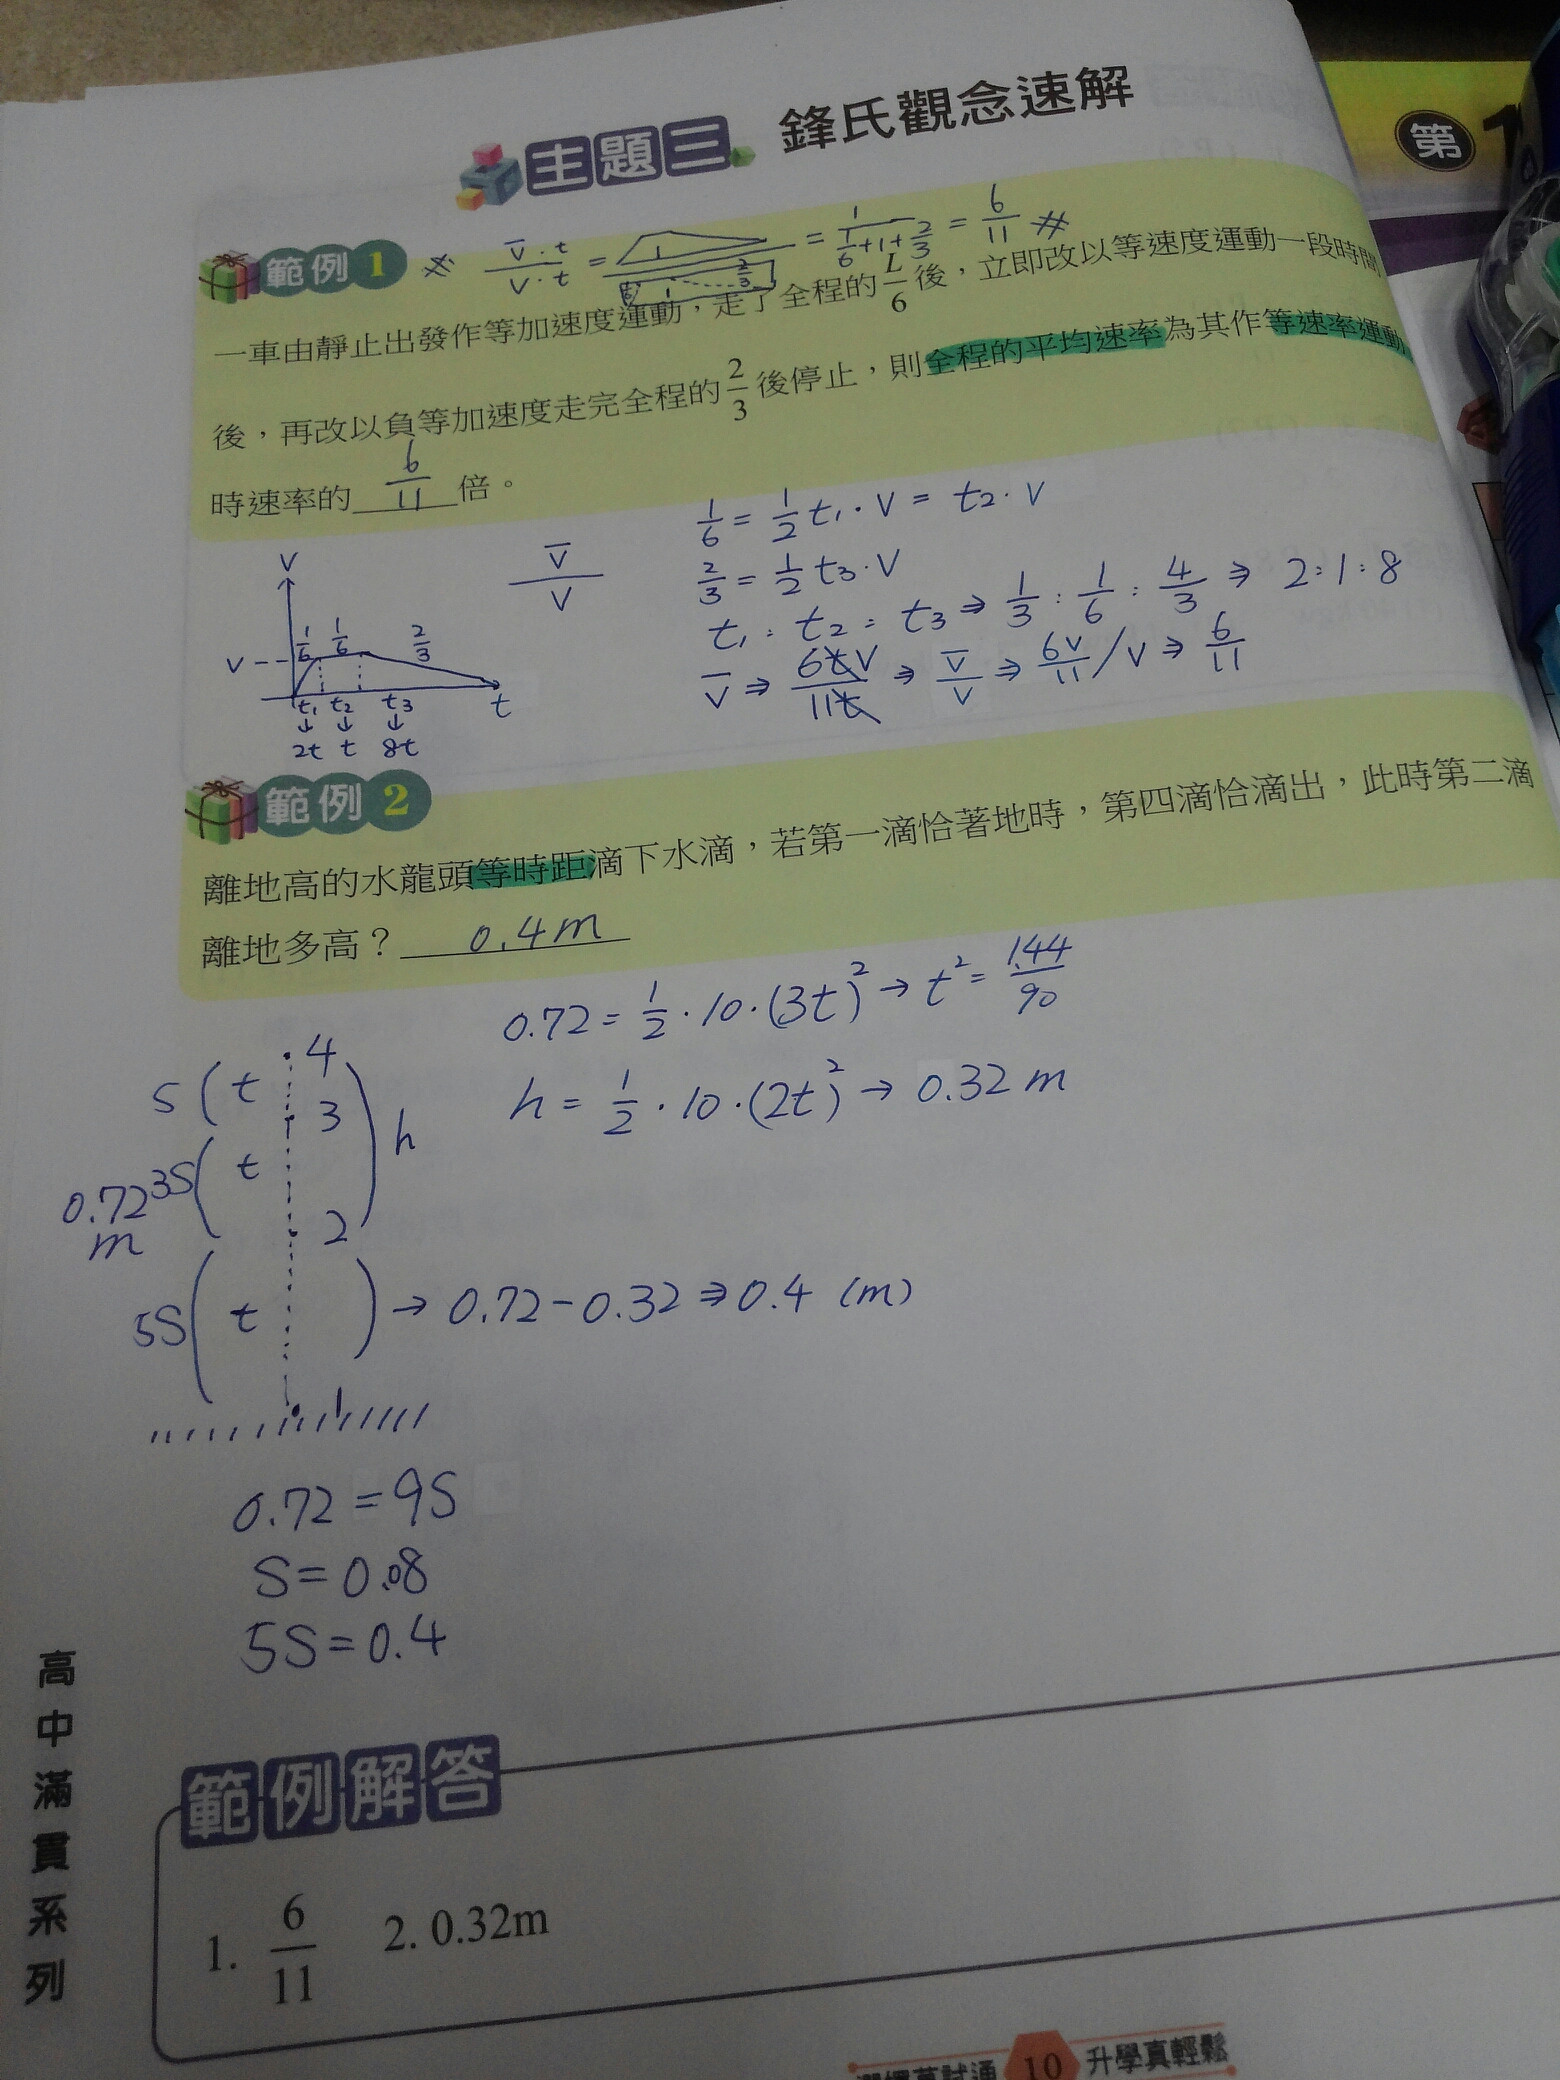 主題三 鋒氏觀念速解
第 1
範例 1 ※ V̄·t / V·t = 1 / (1/6 + 1 + 2/3) = 6/11 #
一車由靜止出發作等加速度運動，走了全程的 L/6 後，立即改以等速度運動一段時間
後，再改以負等加速度走完全程的 2/3 後停止，則全程的平均速率為其作等速率運動
時速率的 6/11 倍。
V
V
1/6 1/6 2/3
t₁ t₂ t₃ t
↓ ↓ ↓
2t t 8t
V̄ / V
1/6 = 1/2 t₁·V = t₂·V
2/3 = 1/2 t₃·V
t₁ : t₂ : t₃ ⇒ 1/3 : 1/6 : 4/3 ⇒ 2:1:8
V̄ ⇒ 6tV / 11t ⇒ V̄/V ⇒ 6V/11 / V ⇒ 6/11
範例 2
離地高的水龍頭等時距滴下水滴，若第一滴恰著地時，第四滴恰滴出，此時第二滴
離地多高？ 0.4m
0.72 = 1/2 · 10 · (3t)² → t² = 1.44/90
h = 1/2 · 10 · (2t)² → 0.32 m
4
S ( t
3
h
0.72 m
3S ( t
2
5S ( t ) → 0.72 - 0.32 ⇒ 0.4 (m)
1
0.72 = 9S
S = 0.08
5S = 0.4
範例解答
1. 6/11 2. 0.32m
高中滿貫系列
10 升學真輕鬆